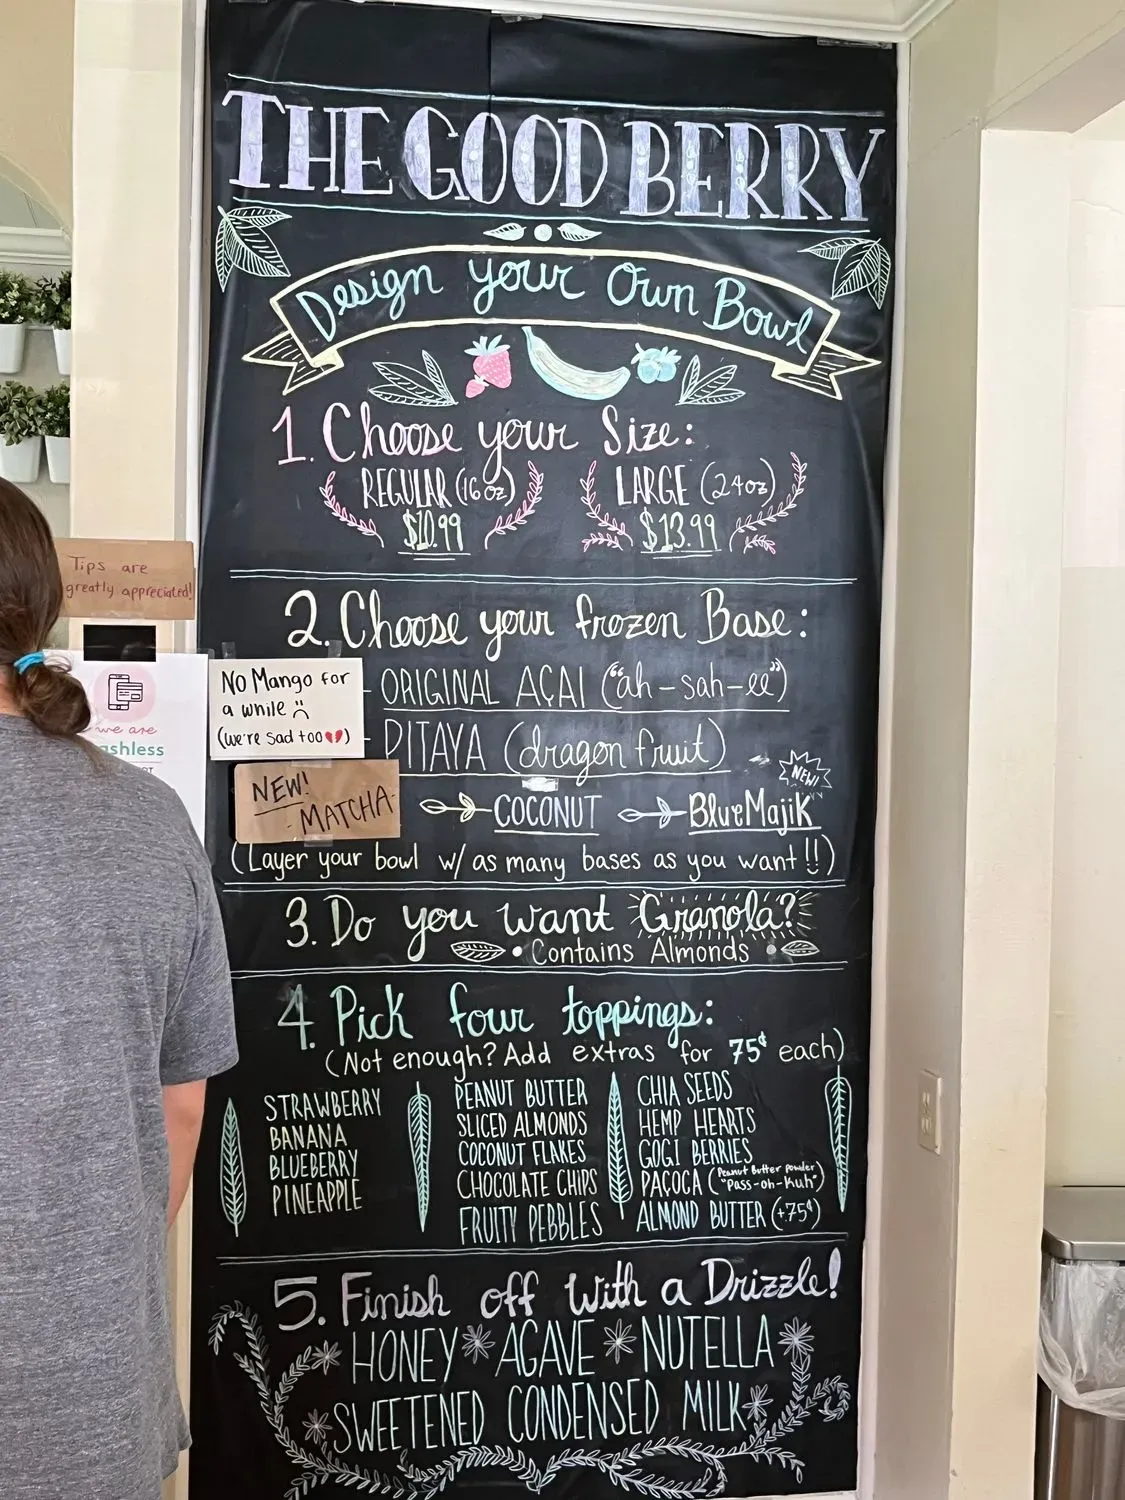 THE GOOD BERRY
Design your Own Bowl
1. Choose your Size:
REGULAR (16 oz)
$10.99
LARGE (24oz)
$13.99
2. Choose your frozen Base:
- ORIGINAL AÇAI ("ah-sah-ee")
- PITAYA (dragon fruit)
NEW!
COCONUT
BlueMajik
(Layer your bowl w/ as many bases as you want!!)
3. Do you want Granola?
• Contains Almonds •
4. Pick four toppings:
(Not enough? Add extras for 75¢ each)
STRAWBERRY
BANANA
BLUEBERRY
PINEAPPLE
PEANUT BUTTER
SLICED ALMONDS
COCONUT FLAKES
CHOCOLATE CHIPS
FRUITY PEBBLES
CHIA SEEDS
HEMP HEARTS
GOGI BERRIES
PAÇOCA (Peanut Butter powder "Pass-oh-Kuh")
ALMOND BUTTER (+75¢)
5. Finish off with a Drizzle!
HONEY * AGAVE * NUTELLA
SWEETENED CONDENSED MILK
Tips are
greatly appreciated!
we are
ashless
No Mango for
a while :(
(we're sad too💔)
NEW!
- MATCHA -